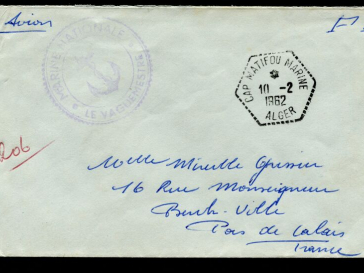 Avion
MARINE NATIONALE
LE VAGUEMESTRE
CAP MATIFOU MARINE
10 -2
1962
ALGER
Melle Mireille
16 Rue Monseigneur
Berck-Ville
Pas de Calais
France